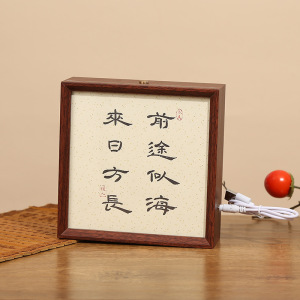 前途似海
來日方長